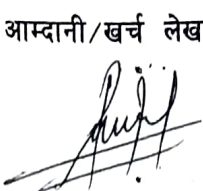 आम्दानी/खर्च लेख